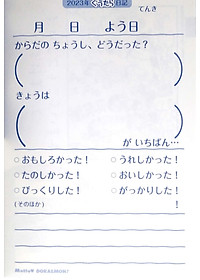 2023年ぐうたら日記
てんき
月 日 よう日
からだの ちょうし、どうだった?
きょうは
が いちばん…
おもしろかった! うれしかった!
たのしかった! おいしかった!
びっくりした! がっかりした!
(そのほか) !